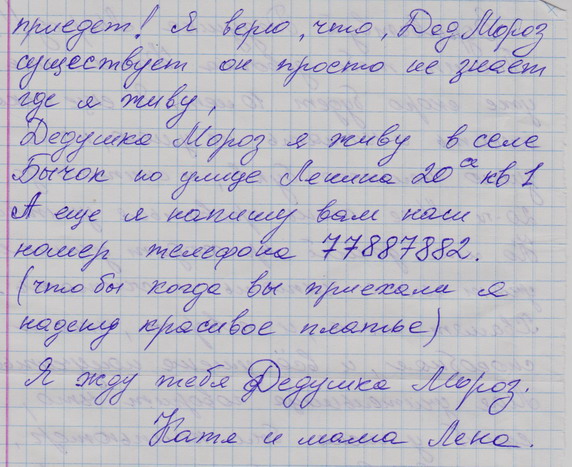 приедет! Я верю, что, Дед Мороз
существует он просто не знает
где я живу,
Дедушка Мороз я живу в селе
Бычок по улице Ленина 20 са кв 1
А еще я напишу вам наш
номер телефона 77887882.
(что бы когда вы приехали я
надену красивое платье)
Я жду тебя Дедушка Мороз.
Катя и мама Лена.